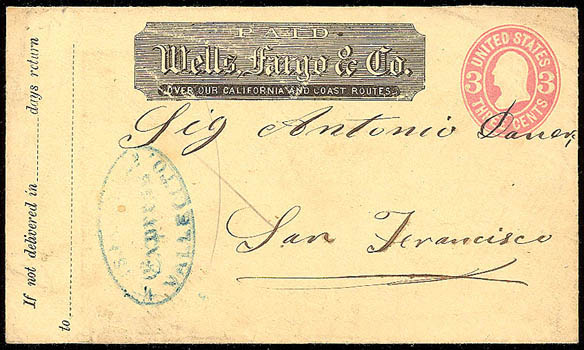 PAID
Wells, Fargo & Co.
OVER OUR CALIFORNIA AND COAST ROUTES.
UNITED STATES
3 3
THREE CENTS
Sig Antonio
San Francisco
If not delivered in ........ days return
to
VALLE